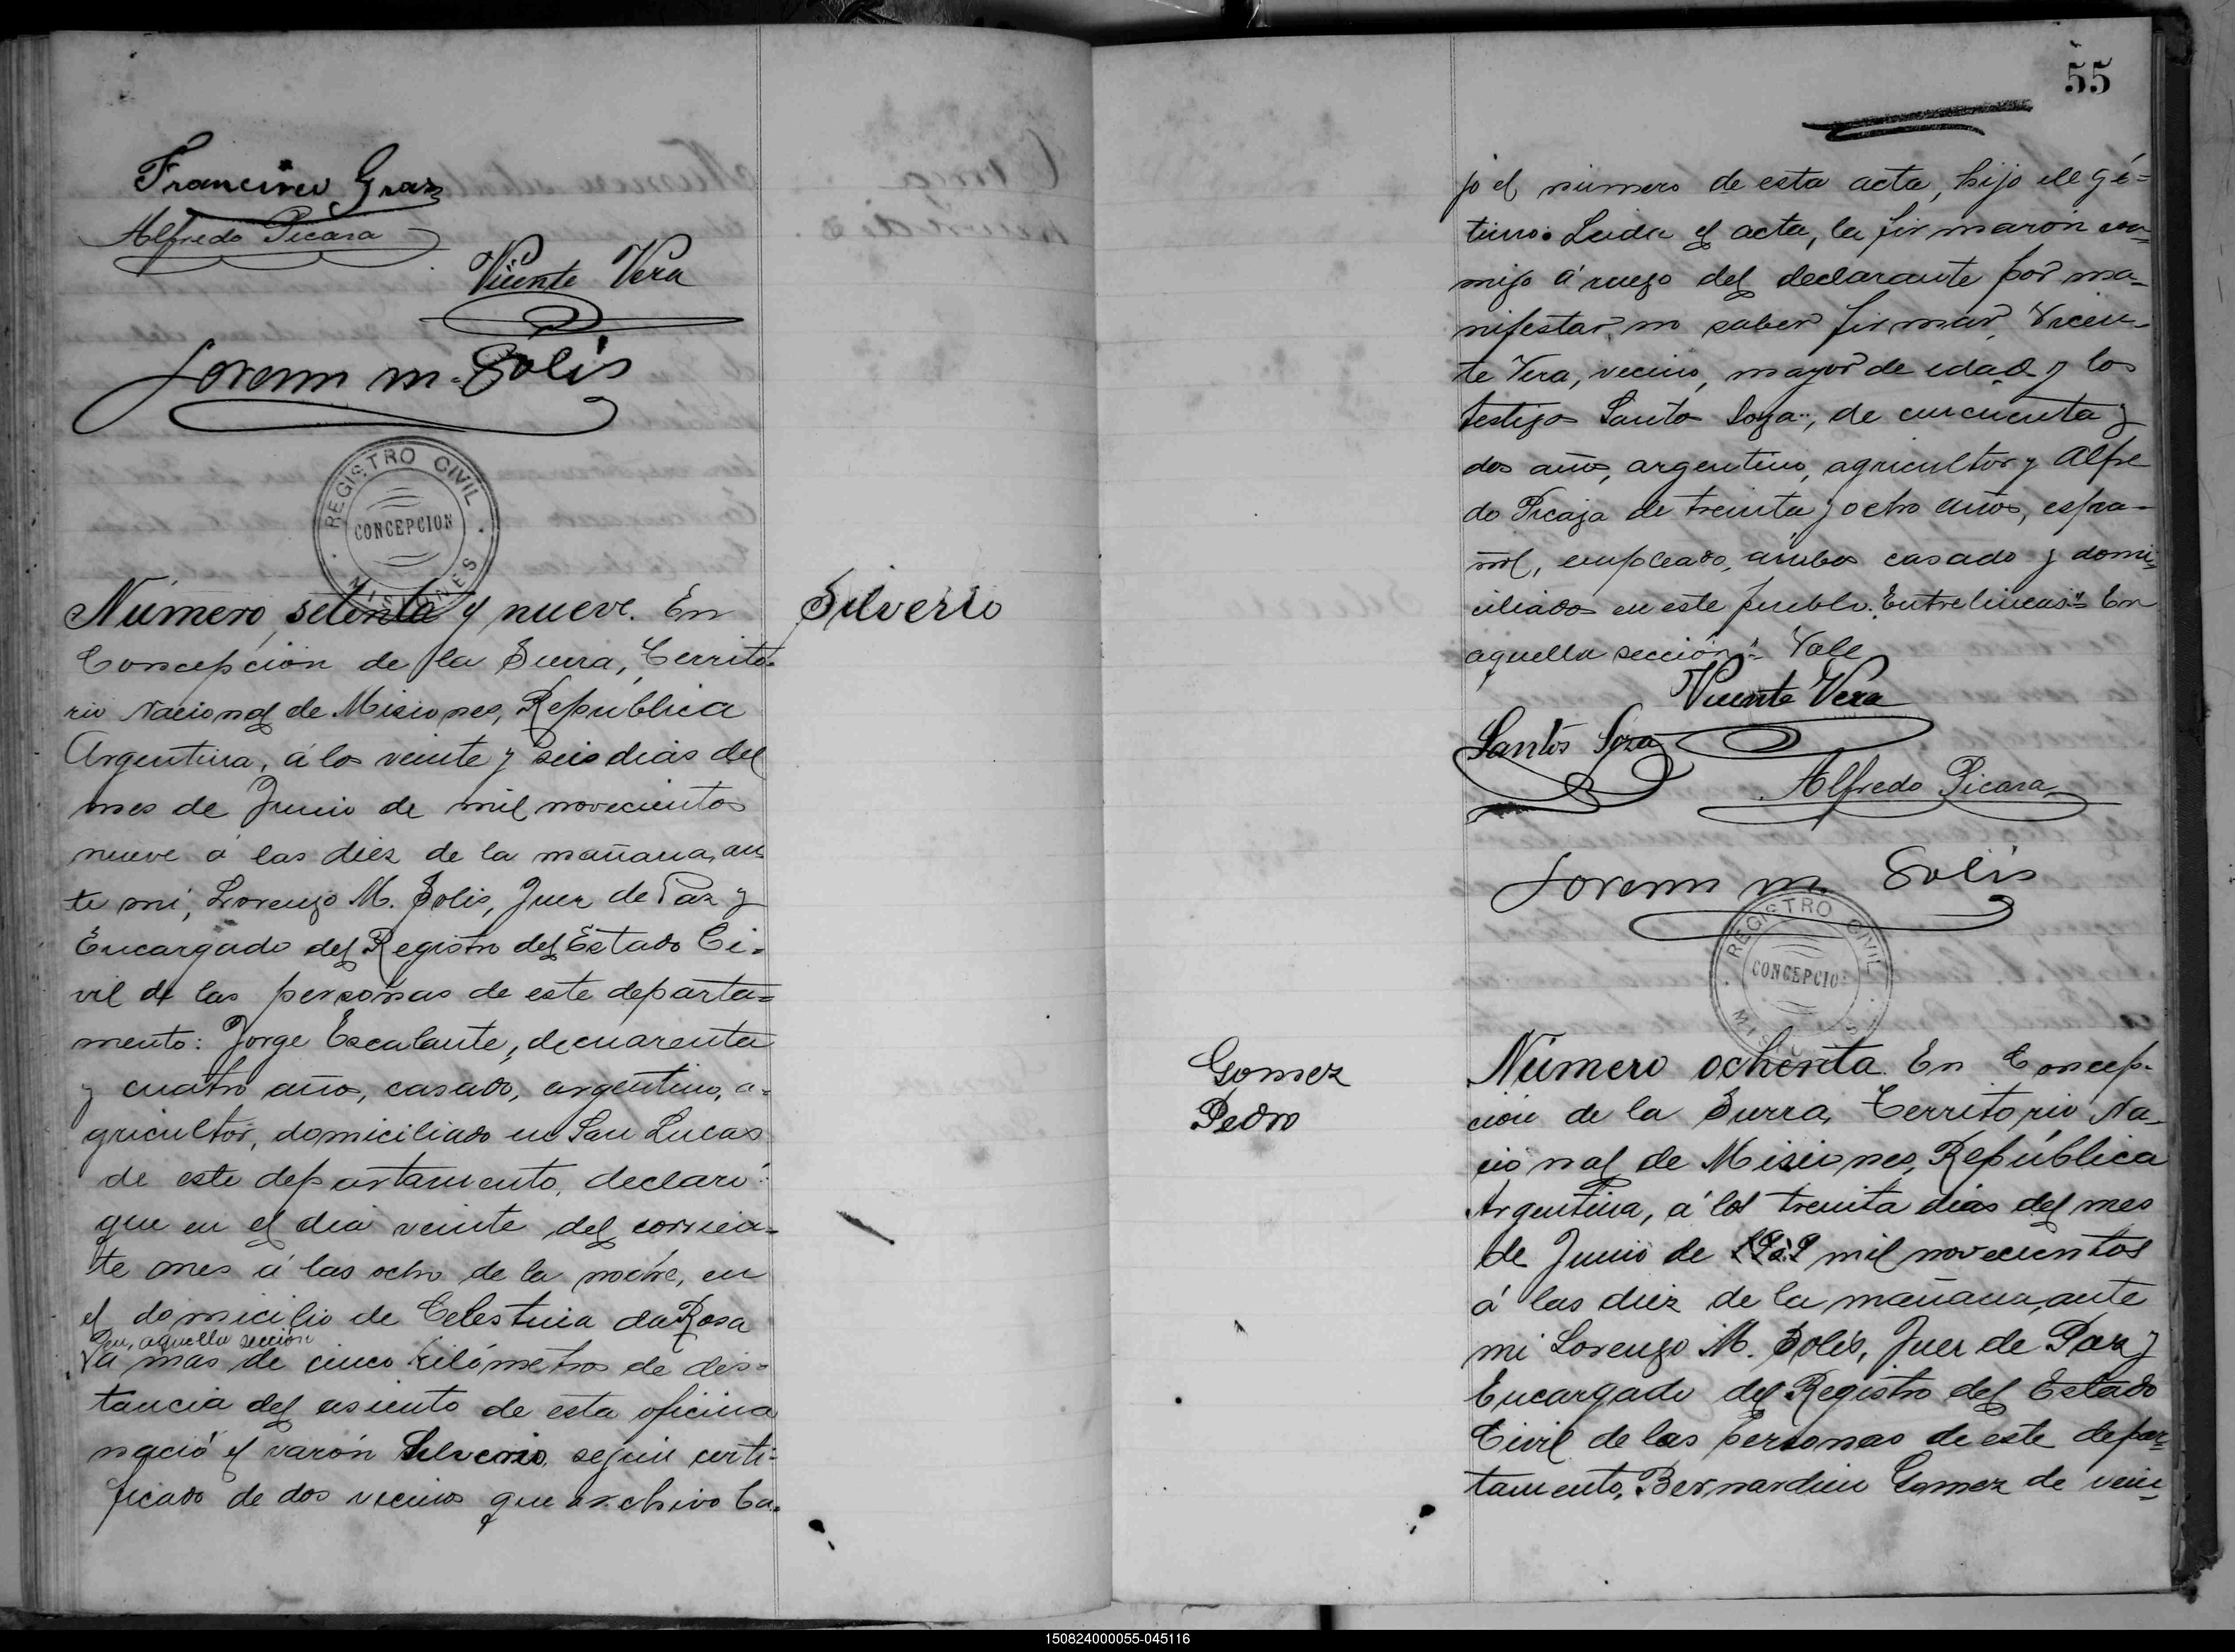 Francisco Gras
Alfredo Picaza
Vicente Vera
Lorenzo M. Solis
REGISTRO CIVIL
CONCEPCION
MISIONES
Número setenta y nueve. En
Concepción de la Sierra, Territo-
rio Nacional de Misiones, República
Argentina, á los veinte y seis dias del
mes de Junio de mil novecientos
nueve á las diez de la mañana, an-
te mi, Lorenzo M. Solis, Juez de Paz y
Encargado del Registro del Estado Ci-
vil de las personas de este departa=
mento: Jorge Escalante, de cuarenta
y cuatro años, casado, argentino, a-
gricultor, domiciliado en San Lucas
de este departamento, declaró:
que en el dia veinte del corrien-
te mes á las ocho de la noche, en
el domicilio de Celestina da Rosa
en aquella sección
á mas de cinco kilómetros de dis-
tancia del asiento de esta oficina
nació el varón Silverio, segun certi-
ficado de dos vecinos que archivo ba-
Silverio
55
jo el número de esta acta, hijo ilegí=
timo. Leida el acta, la firmaron con-
migo á ruego del declarante por ma-
nifestar no saber firmar, Vicen-
te Vera, vecino, mayor de edad y los
testigos Santos Soza, de cincuenta y
dos años, argentino, agricultor y Alfre
do Picaza de treinta y ocho años, espa-
ñol, empleado, ambos casados y domi-
ciliados en este pueblo. Entrelineas: "En
aquella sección" Vale
Vicente Vera
Santos Soza
Alfredo Picaza
Lorenzo M. Solis
REGISTRO CIVIL
CONCEPCIO
Gomez
Pedro
Número ochenta. En Concep-
ción de la Sierra, Territorio Na-
cional de Misiones, República
Argentina, á los treinta dias del mes
de Junio de mil novecientos
á las diez de la mañana, ante
mi Lorenzo M. Solis, Juez de Paz y
Encargado del Registro del Estado
Civil de las personas de este depar=
tamento, Bernardino Gomez de vein-
150824000055-045116